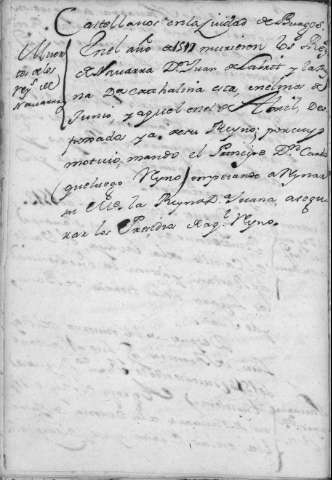 Castellanos en la Ciudad de Burgos.
Muer
tes de los
reys. de
Navarra
En el año de 1517 murieron los Reys
de Navarra Dn. Juan de Labrit y la Rey
na Da. Cathalina esta en el mes de
Junio, y aquel en el de Abril, des
pojados ya de su Reyno; por cuyo
motivo, mando el Principe Dn. Carlos
que luego Reyno
emperando a Reynar
la Reyna Da. Juana, asegu
rar los de aql. Reyno.